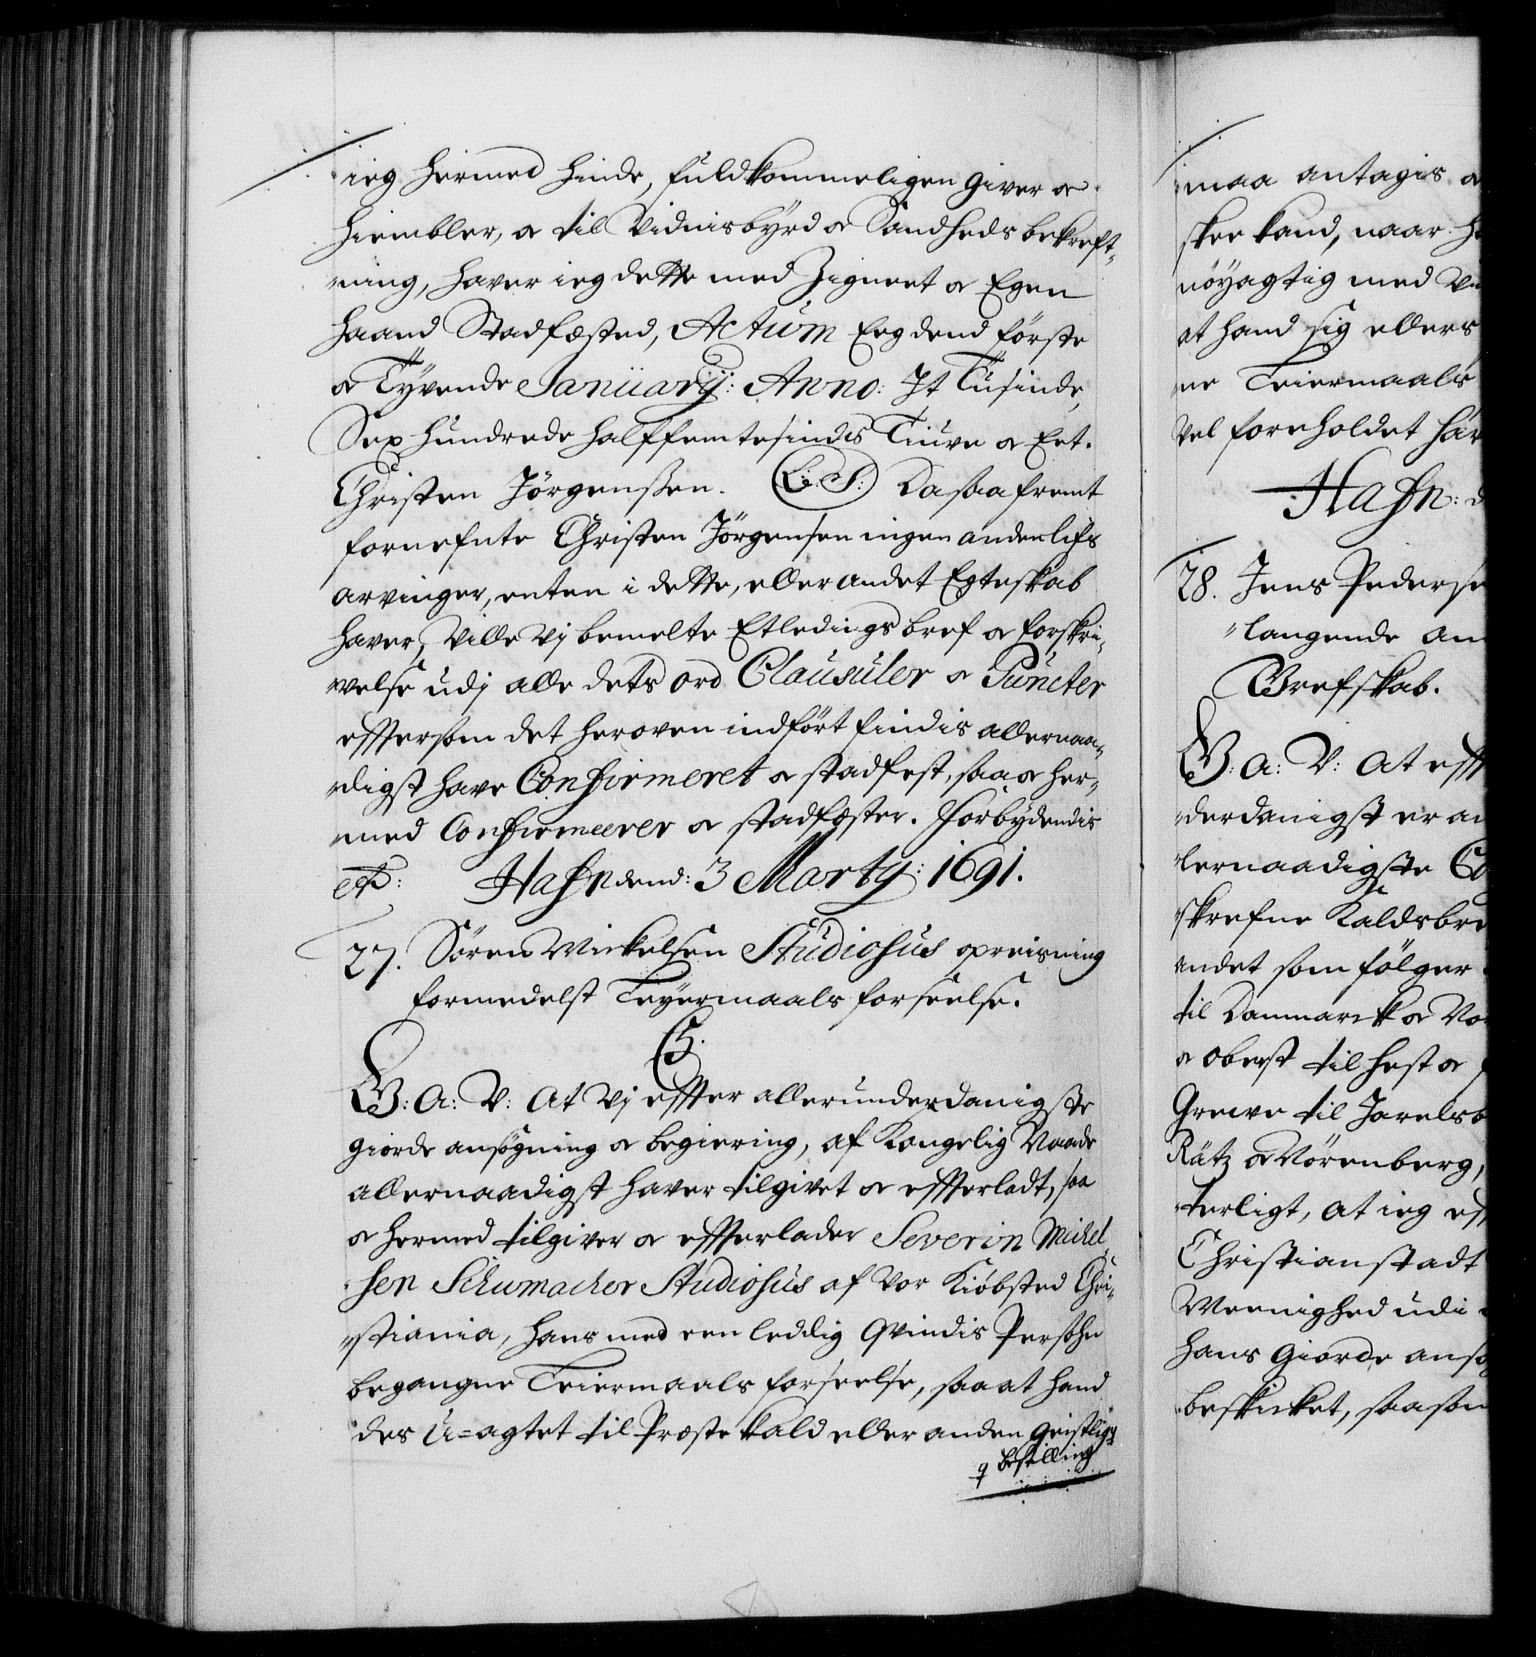 ieg hermed hinde, fuldkommeligen giver oc
hiembler, oc til Vidnisbÿrd oc Sandheds bekreft-
ning, haver ieg dette med Zignet oc Egen
haand Stadfæsted, Actum Eeg dend förste
oc Tÿvende Januarij: Anno: It Tusinde,
Sex hundrede halffemtesindes Tiuve oc Eet.
Christen Jörgenssen. L: S: Da saafremt
fornefnte Christen Jörgensen ingen anden lifs
arvinger, enten i dette, eller andet Egteskab
haver, Ville Vj bemelte Etledings bref oc forskri-
velse udj alle dets ord Clausuler oc Puncter
efftersom det heroven indfört findis allernaa-
digst have Confirmeret oc stadfest, saa oc her-
med Confirmeerer oc stadfæster. Forbÿdendis
etc: Hafn dend: 3 Martij: 1691.
27. Sören Mickelsen Studiosus opreisning
formedelst Leÿermaals forseelse.
C5.
G: A: V: At Vj effter allerunderdanigste
giorde ansögning oc begiering, af Kongelig Naade
allernaadigst haver tilgivet oc effterladt, saa
oc hermed tilgiver oc effterlader Severin Michel-
sen Schumacher Studiosus af Vor Kiöbsted Chri-
stiania, hans med een leddig Qvindis Persohn
begangne Leiermaals forseelse, saa at hand
des U=agtet til Præste Kald eller anden Geistlig
bestilling
maa antagis oc
skee kand, naar
nöÿagtig med
at hand sig ellers
ne Leiermaals
vel foreholdet
Hafn: d
28. Jens Peders
langende
Brefskab.
G: A: V: At eff
derdanigst er
lernaadigste
skrefne Kaldsbre
andet som fölger
til Danmarck oc
oc oberst til hest oc
Greve til Jarelsb
Rätz oc Nörenberg,
terligt, at ieg eff
Christianstadt
Meenighed udi
hans giorde ansö
beskicket, saasom